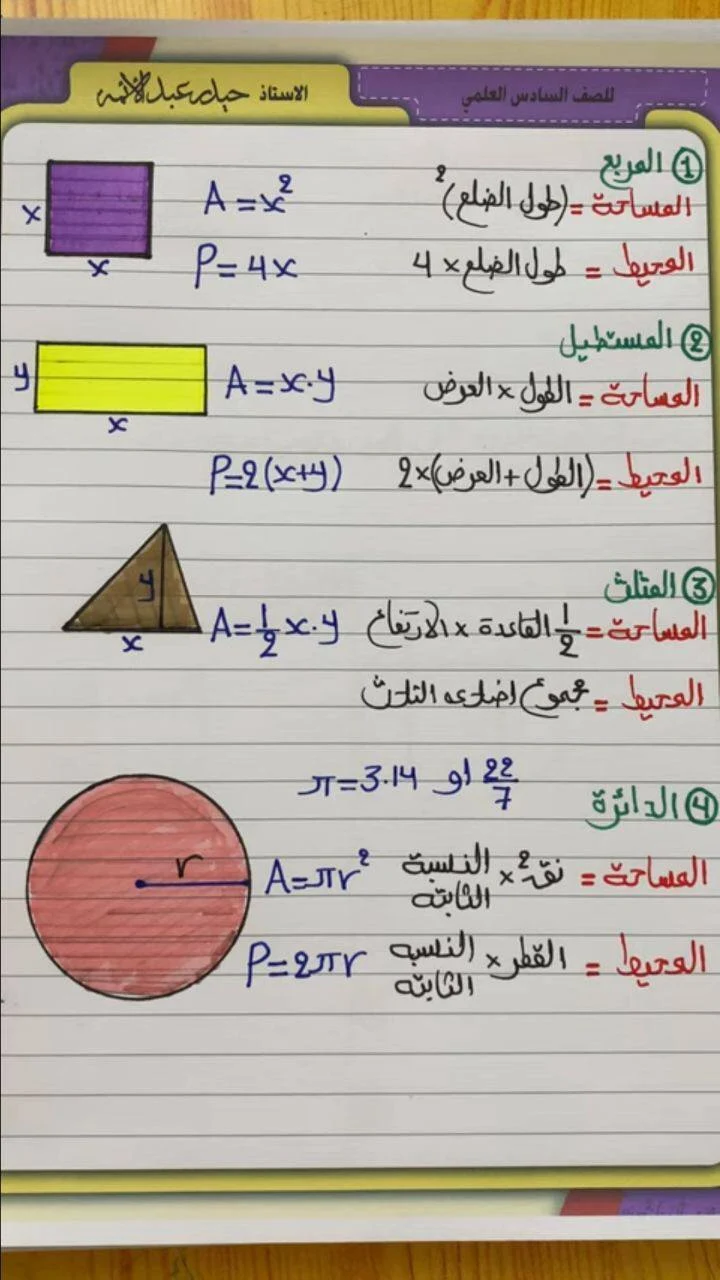 للصف السادس العلمي
الاستاذ حيدر عبد الأئمه
① المربع
المساحة = (طول الضلع)²
A = x²
x
x
المحيط = طول الضلع × 4
P = 4x
② المستطيل
المساحة = الطول × العرض
A = x.y
y
x
المحيط = (الطول + العرض) × 2
P = 2(x+y)
③ المثلث
المساحة = 1/2 القاعدة × الارتفاع
A = 1/2 x.y
y
x
المحيط = مجموع اضلاعه الثلاث
④ الدائرة
π = 3.14 او 22/7
المساحة = نقه² × النسبة الثابته
A = πr²
r
المحيط = القطر × النسبه الثابته
P = 2πr